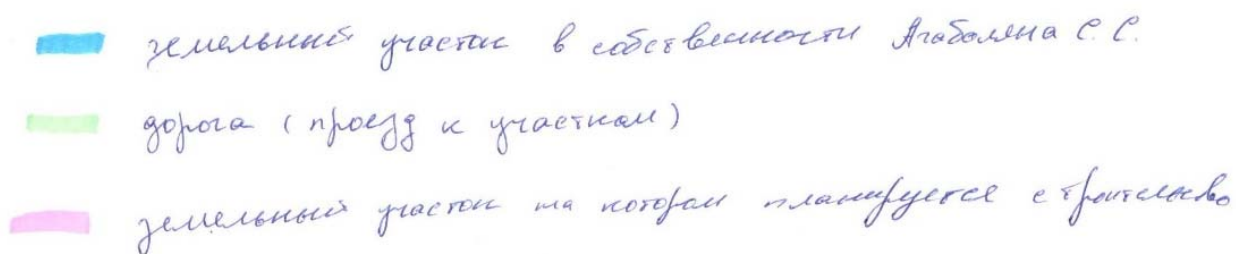 земельный участок в собственности Агабаляна С. С.
дорога (проезд к участкам)
земельный участок на котором планируется строительство